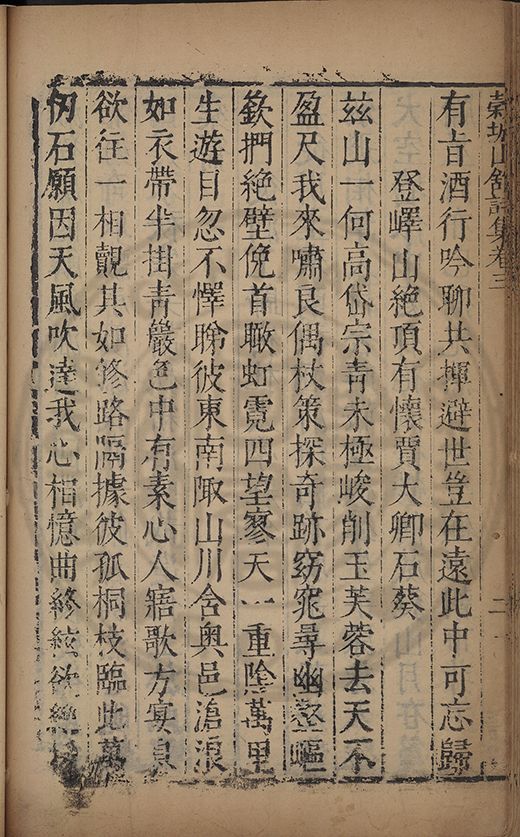 穀城山館詩集卷三
二
有旨酒行吟聊共揮避世豈在遠此中可忘歸
登嶧山絕頂有懷賈大卿石葵
茲山一何高岱宗青未極峻削玉芙蓉去天不
盈尺我來嘯良偶杖策探奇跡窈窕尋幽壑嶇
嶔捫絕壁俛首瞰虹霓四望寥天一重陰萬里
生遊目忽不懌睇彼東南陬山川含奧邑滄浪
如衣帶半掛青巖邑中有素心人寤歌方宴息
欲往一相覿其如修路隔據彼孤桐枝臨此萬
仞石願因天風吹達我心相憶曲終絃欲絕